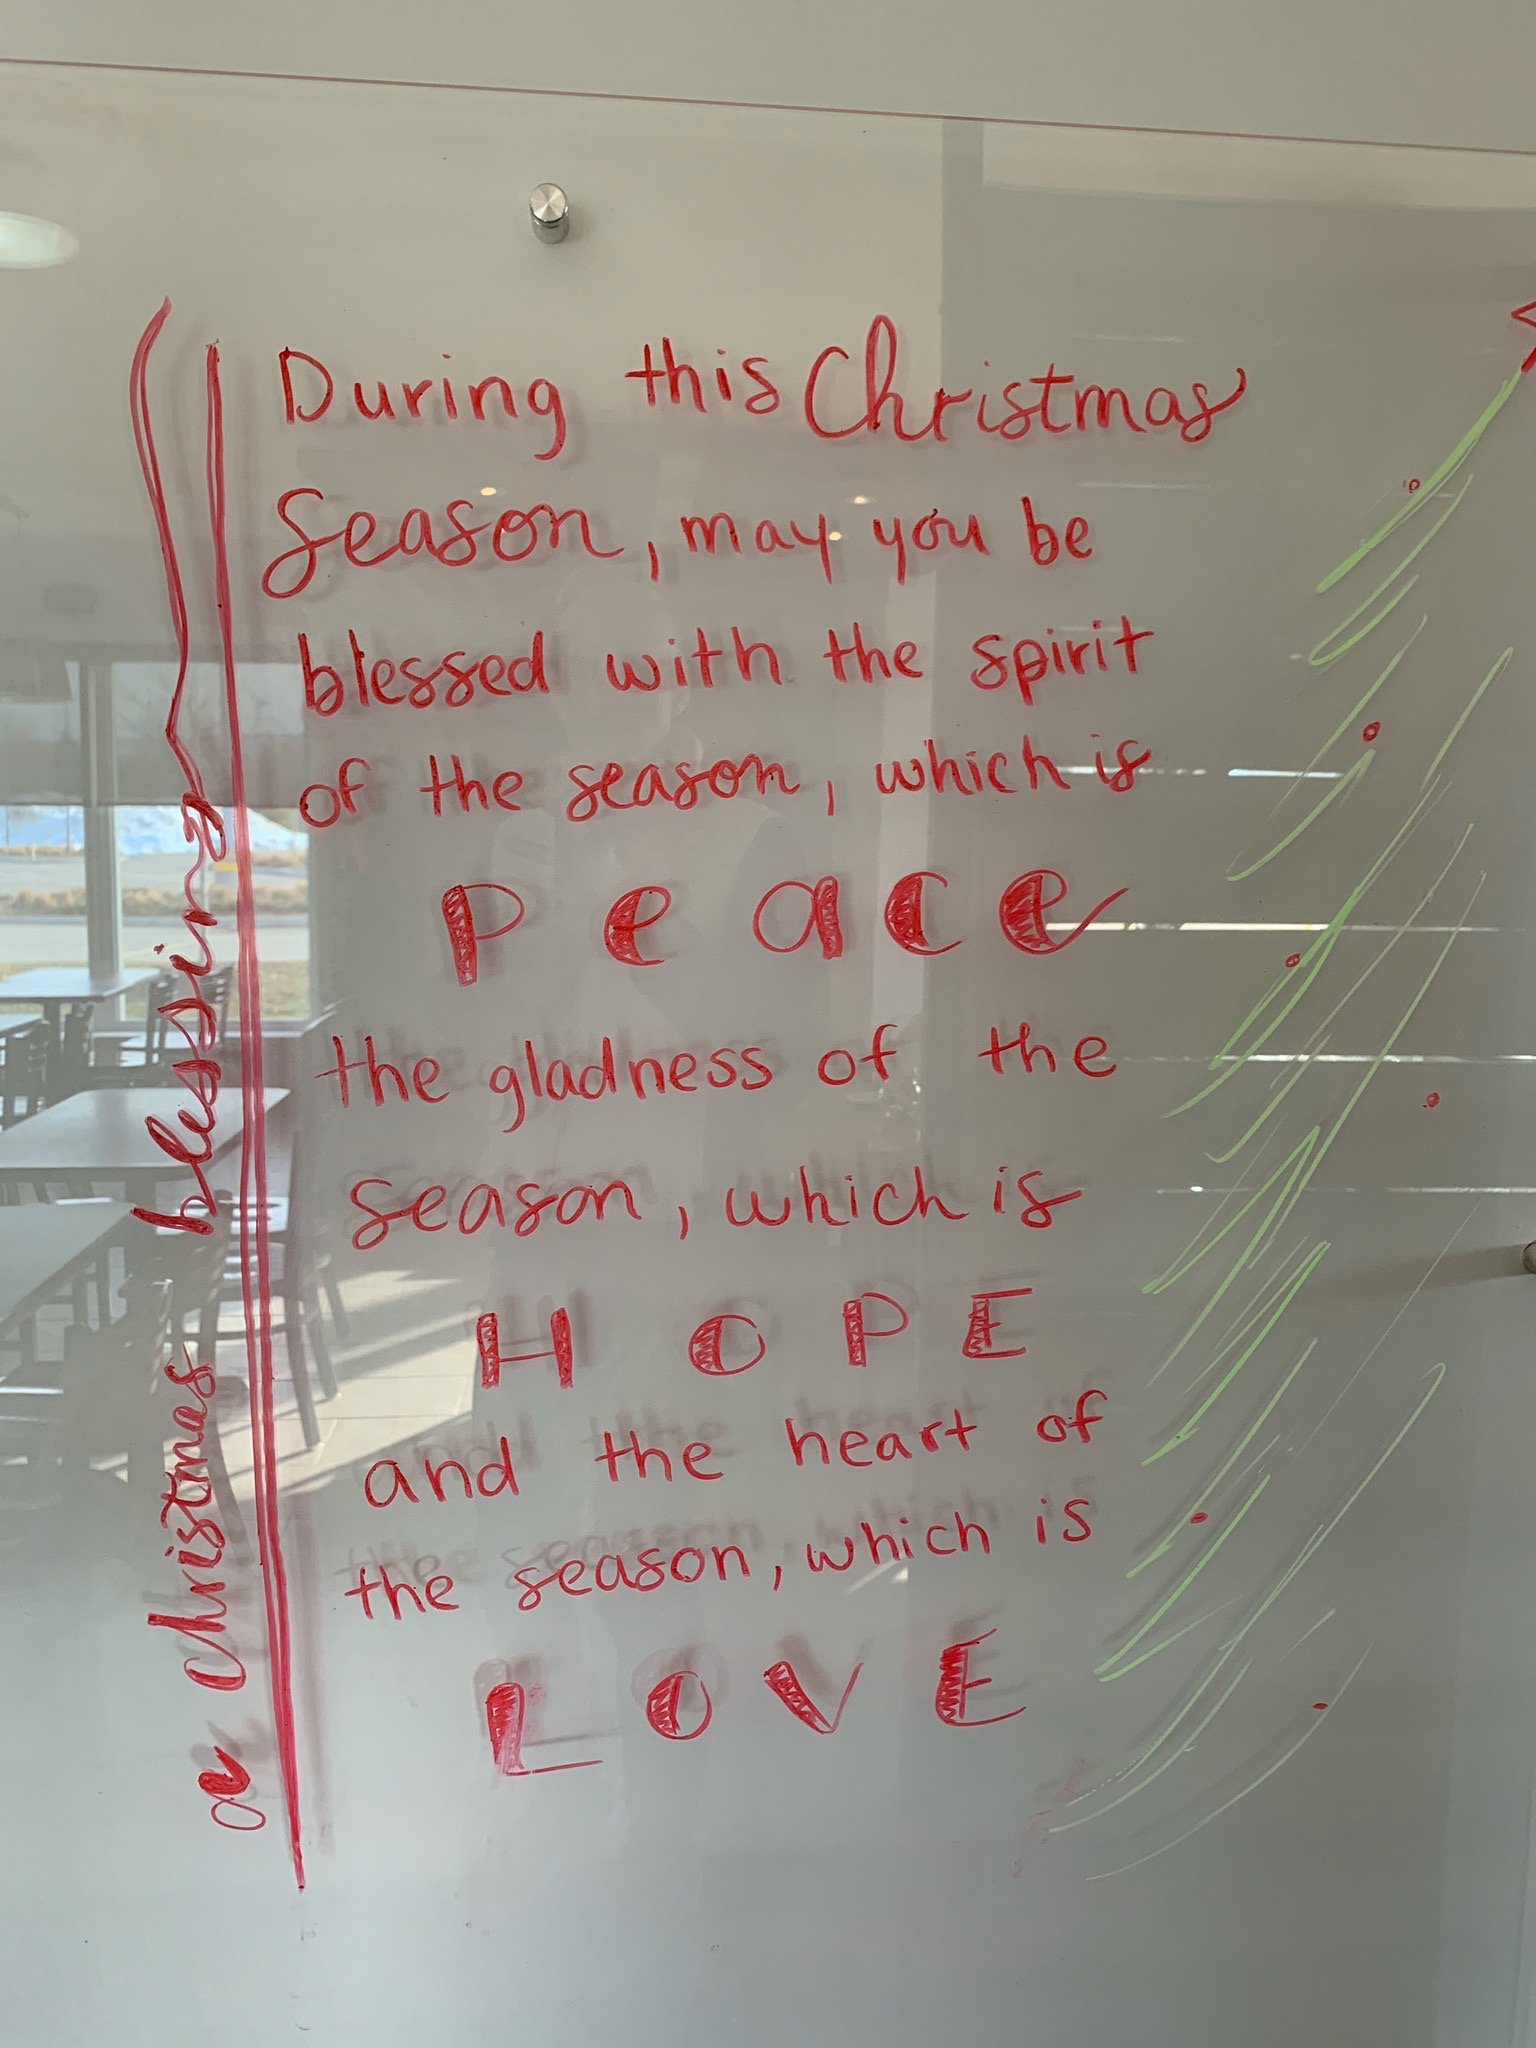 a Christmas blessing
During this Christmas
Season, may you be
blessed with the spirit
of the season, which is
Peace
the gladness of the
season, which is
HOPE
and the heart of
the season, which is
LOVE